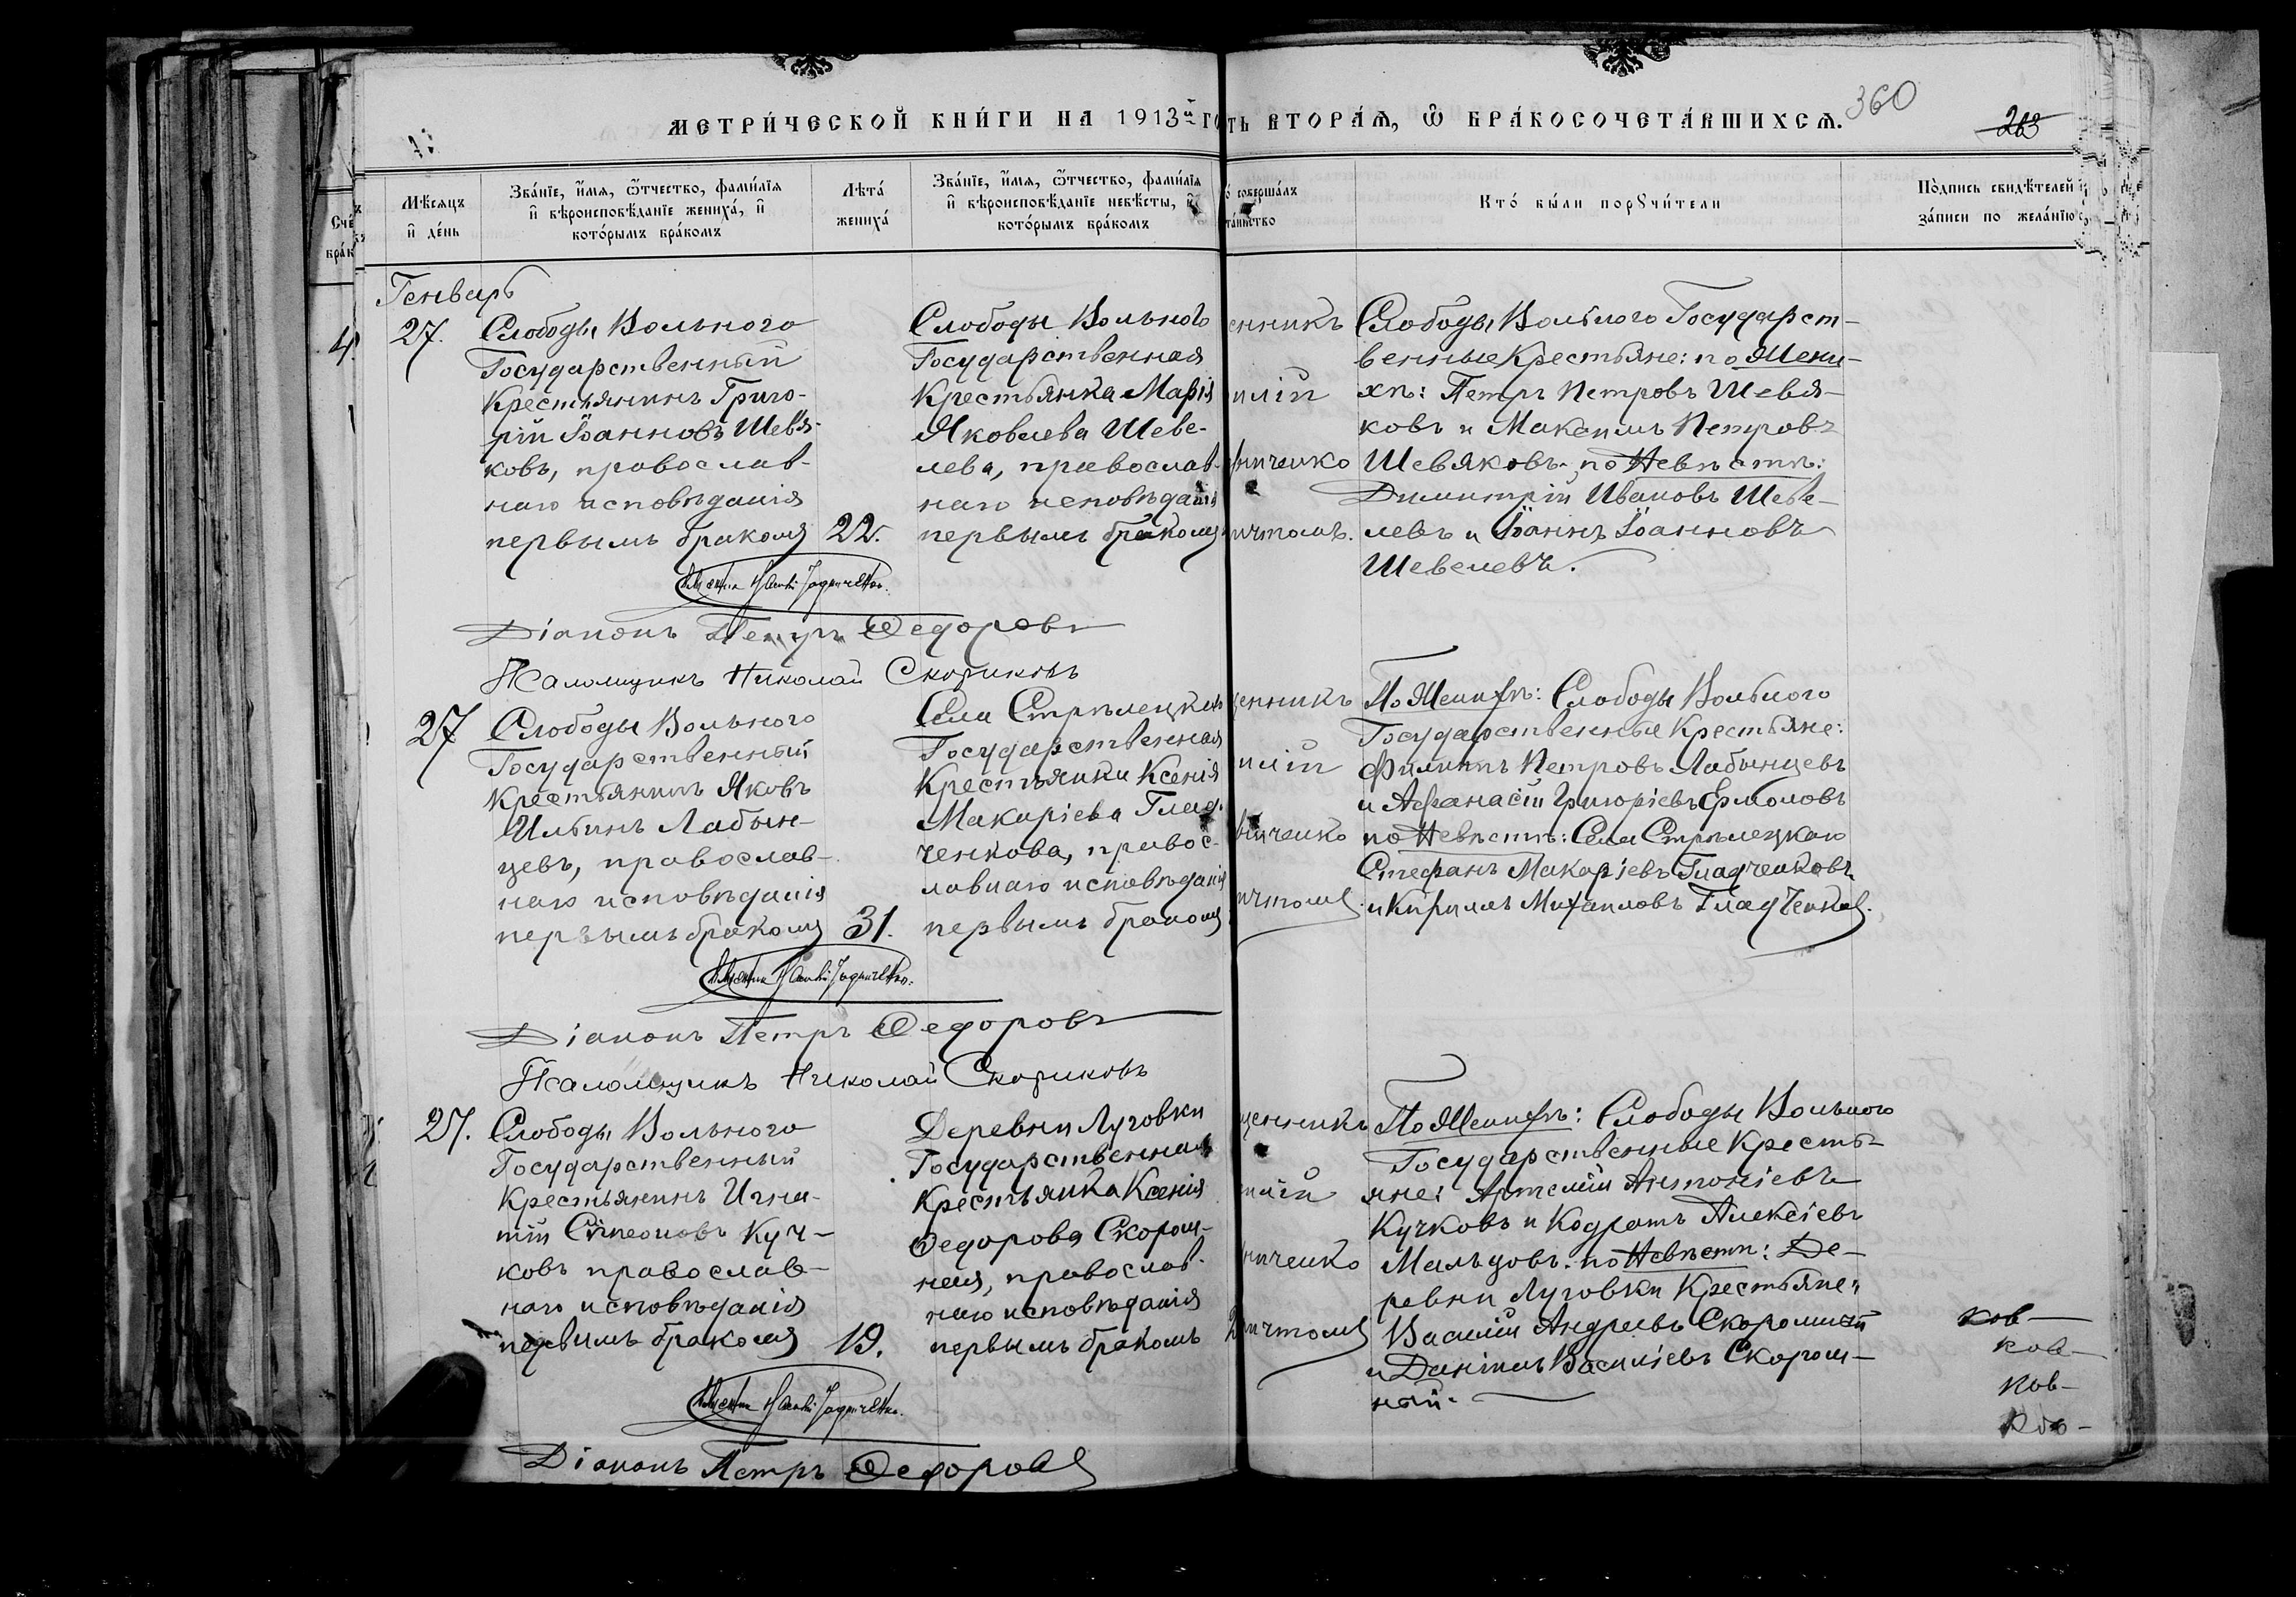 МЕТРИ́ЧЕСКОЙ КНИ́ГИ НА 1913й ГО
ТЬ ВТОРА́Я, Ѿ БРА́КОСОЧЕТА́ВШИХСЯ.
360
263
Сче́
бра́к
Мѣ́сяцъ
и҆ де́нь
Зва́нїе, и҆́мя, ѻ҆́тчество, фами́лїя
и҆ вѣроисповѣ́данїе жениха́, и҆
кото́рымъ бра́комъ
Лѣта́
жениха́
Зва́нїе, и҆́мя, ѻ҆́тчество, фами́лїя
и҆ вѣроисповѣ́данїе невѣ́сты, и҆
кото́рымъ бра́комъ
о́ соверша́лъ
та́инство
Кто́ бы́ли порꙋчи́тели
По́дпись свидѣ́телей
за́писи по жела́нїю
Генварь
4.
27.
Слободы Вольного
Государственный
Крестьянинъ Григо-
рій Іоанновъ Шевя-
ковъ, православ-
наго исповѣданія
первымъ бракомъ
22.
Слободы Вольного
Государственная
Крестьянка Марія
Яковлева Шеве-
лева, православ-
наго исповѣданія
первымъ бракомъ
енникъ
илій
риченко
ичтомъ.
Слободы Вольного Государст-
венные Крестьяне: по Жени-
хѣ: Петръ Петровъ Шевя-
ковъ и Максимъ Петровъ
Шевяковъ. по Невѣстѣ:
Димитрій Ивановъ Шеве-
левъ и Іоаннъ Іоанновъ
Шевелевъ.
Діаконъ Петръ Федоровъ
Псаломщикъ Николай Скориковъ
27
Слободы Вольного
Государственный
Крестьянинъ Яковъ
Ильинъ Лабын-
цевъ, православ-
наго исповѣданія
первымъ бракомъ
31.
Села Стрѣлецкаго
Государственная
Крестьянка Ксенія
Макаріева Глад-
ченкова, правос-
лавнаго исповѣданія
первымъ бракомъ
щенникъ
илій
риченко
ичтомъ.
По Женихѣ: Слободы Вольного
Государственные Крестьяне:
Филиппъ Петровъ Лабынцевъ
и Афанасій Григоріевъ Ермоловъ
по Невѣстѣ: Села Стрѣлецкаго
Стефанъ Макаріевъ Гладченковъ
и Кириллъ Михаиловъ Гладченков.
Діаконъ Петръ Федоровъ
Псаломщикъ Николай Скориковъ
27.
Слободы Вольного
Государственный
Крестьянинъ Игна-
тій Симеоновъ Куч-
ковъ православ-
наго исповѣданія
первымъ бракомъ
19.
Деревни Луговки
Государственная
Крестьянка Ксенія
Федорова Скором-
ная, православ-
наго исповѣданія
первымъ бракомъ
щенникъ
илій
риченко
ичтомъ
По Женихѣ: Слободы Вольного
Государственные Кресть-
яне: Артемій Антоніевъ
Кучковъ и Кодратъ Алексіевъ
Мальцовъ. по Невѣстѣ: Де-
ревни Луговки Крестьяне:
Василій Андреевъ Скоромный
и Даніилъ Василіевъ Скором-
ный.
ков-
ков-
ков-
ков-
Діаконъ Петръ Федоровъ